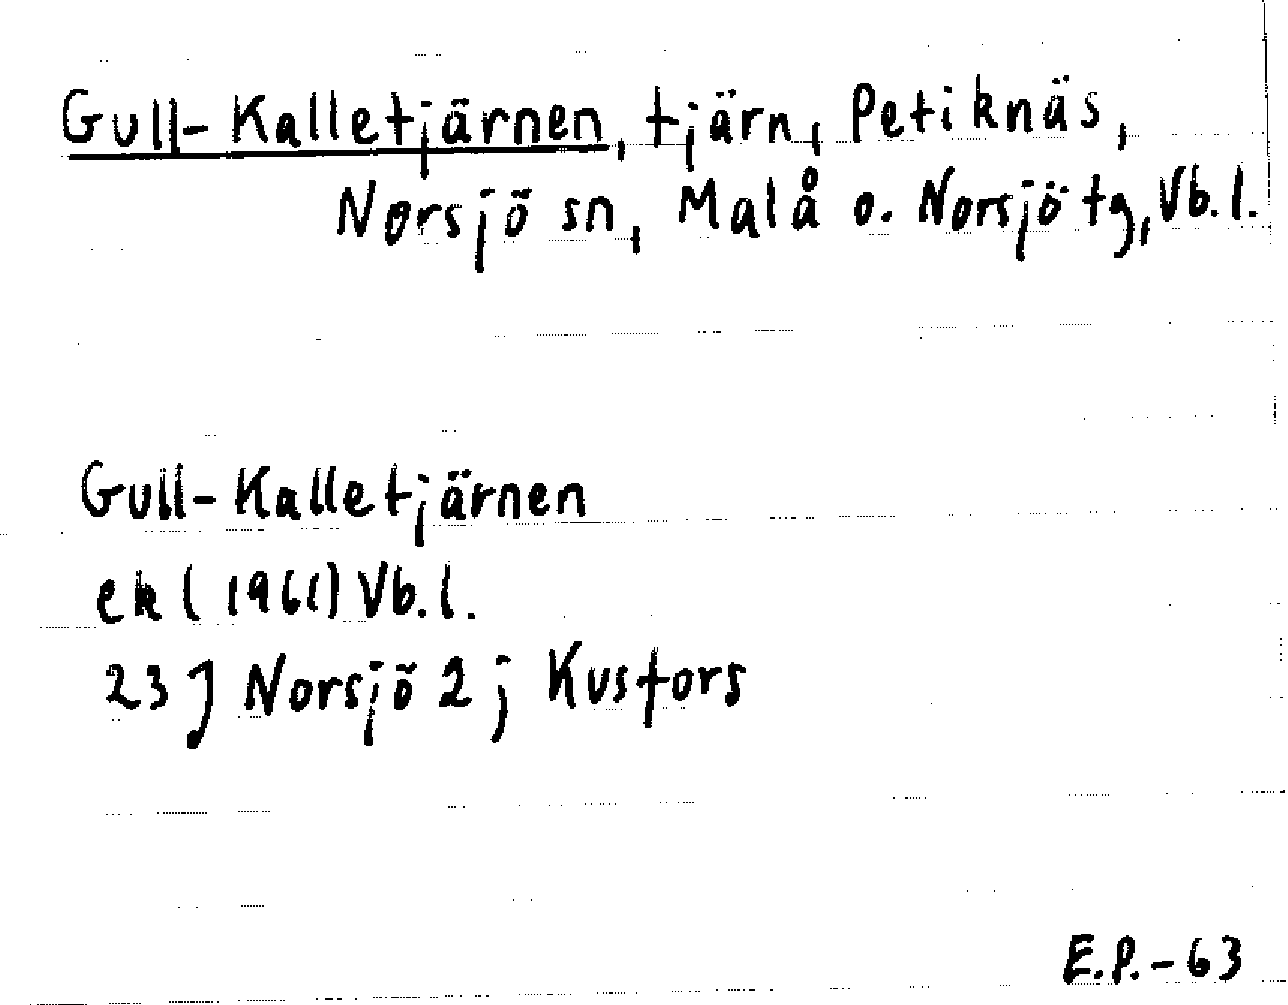 Gull-Kalletjärnen, tjärn, Petiknäs,
Norsjö sn, Malå o. Norsjö tg, Vb. l.
Gull-Kalletjärnen
ek (1961) Vb. l.
23 J Norsjö 2 j Kusfors
E.P.-63